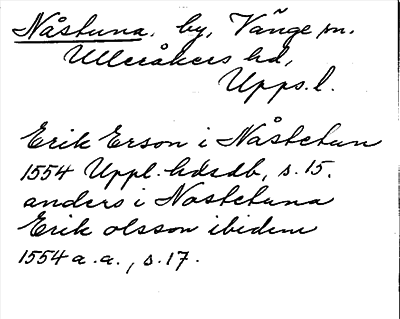 Nåstuna. by, Vänge sn.
Ulleråkers hd,
Upps. l.
Erik Erson i Nåstetun
1554 Uppl. hdsdb, s. 15.
anders i Nastetuna
Erik olsson ibidem
1554 a. a., s. 17.